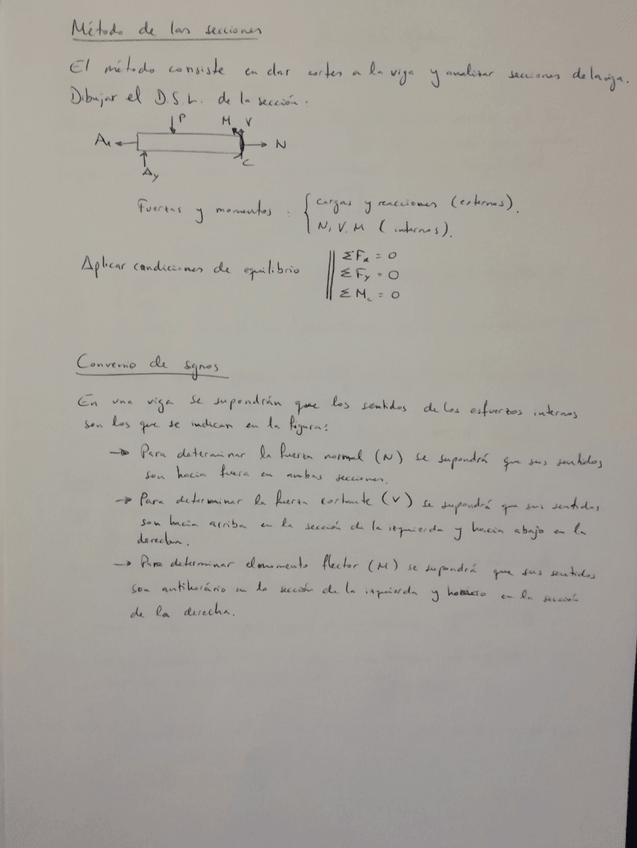 Método de las secciones
El método consiste en dar cortes a la viga y analizar secciones de la viga.
Dibujar el D.S.L. de la sección.
P M V
Ax N
C
Ay
Fuerzas y momentos : { cargas y reacciones (externos).
N, V, M (internos).
Aplicar condiciones de equilibrio || ΣFx = 0
ΣFy = 0
ΣMc = 0
Convenio de signos
En una viga se supondrán que los sentidos de los esfuerzos internos
son los que se indican en la figura:
→ Para determinar la fuerza normal (N) se supondrá que sus sentidos
son hacia fuera en ambas secciones.
→ Para determinar la fuerza cortante (V) se supondrá que sus sentidos
son hacia arriba en la sección de la izquierda y hacia abajo en la
derecha.
→ Para determinar el momento flector (M) se supondrá que sus sentidos
son antihorário en la sección de la izquierda y horario en la sección
de la derecha.